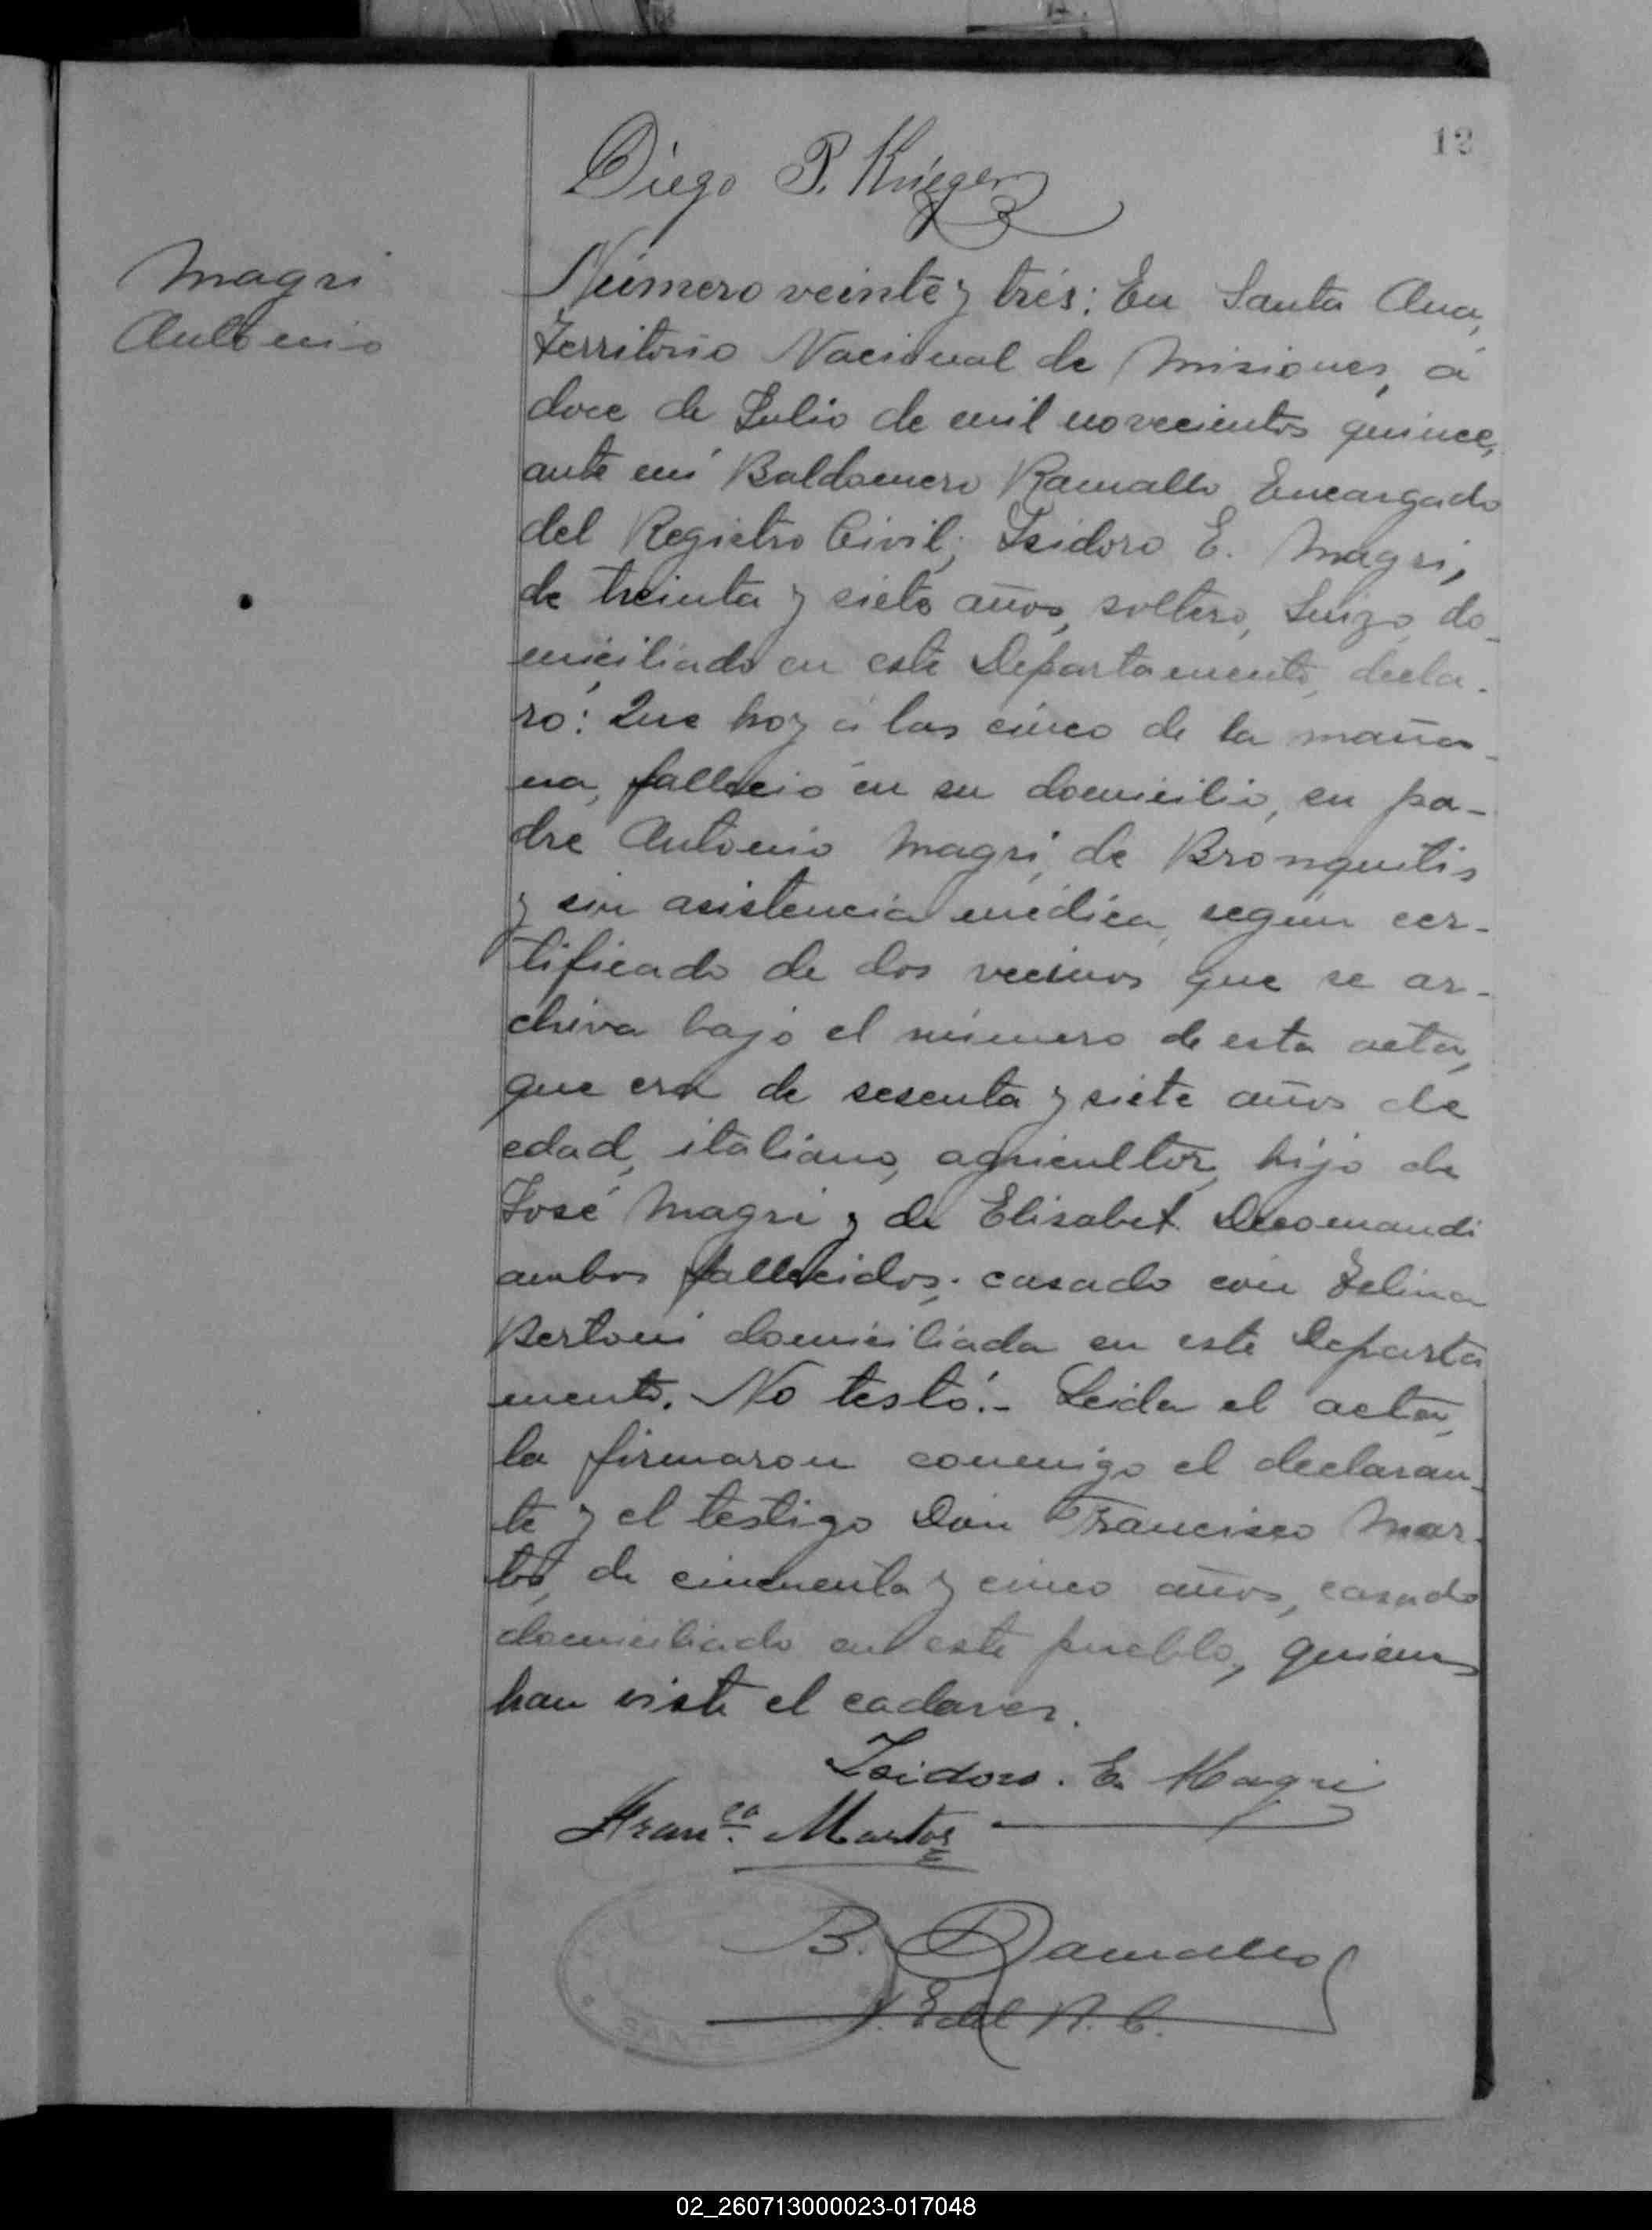 12
Diego P. Krieger
Magri
Antonio
Número veinte y trés: En Santa Ana,
Territorio Nacional de Misiones, á
doce de Julio de mil novecientos quince,
ante mí Baldomero Ramallo Encargado
del Registro Civil; Isidoro E. Magri,
de treinta y siete años, soltero, Suizo, do_
miciliado en este Departamento, decla-
ró: Que hoy á las cinco de la maña-
na, falleció en su domicilio, su pa-
dre Antonio Magri, de Bronquitis
y sin asistencia médica, según cer-
tificado de dos vecinos que se ar-
chiva bajo el número de esta acta,
que era de sesenta y siete años de
edad, italiano, agricultor, hijo de
José Magri y de Elisabet Decomandi
ambos fallecidos; casado con Felina
Bertoni domiciliada en este Departa
mento. No testó.- Leida el acta,
la firmaron conmigo el declaran_
te y el testigo Don Francisco Mar-
tos, de cincuenta y cinco años, casado
domiciliado en este pueblo, quienes
han visto el cadaver.
Isidoro. E. Magri
Franco. Martos
B. Ramallo
E. del R. C.
02_260713000023-017048